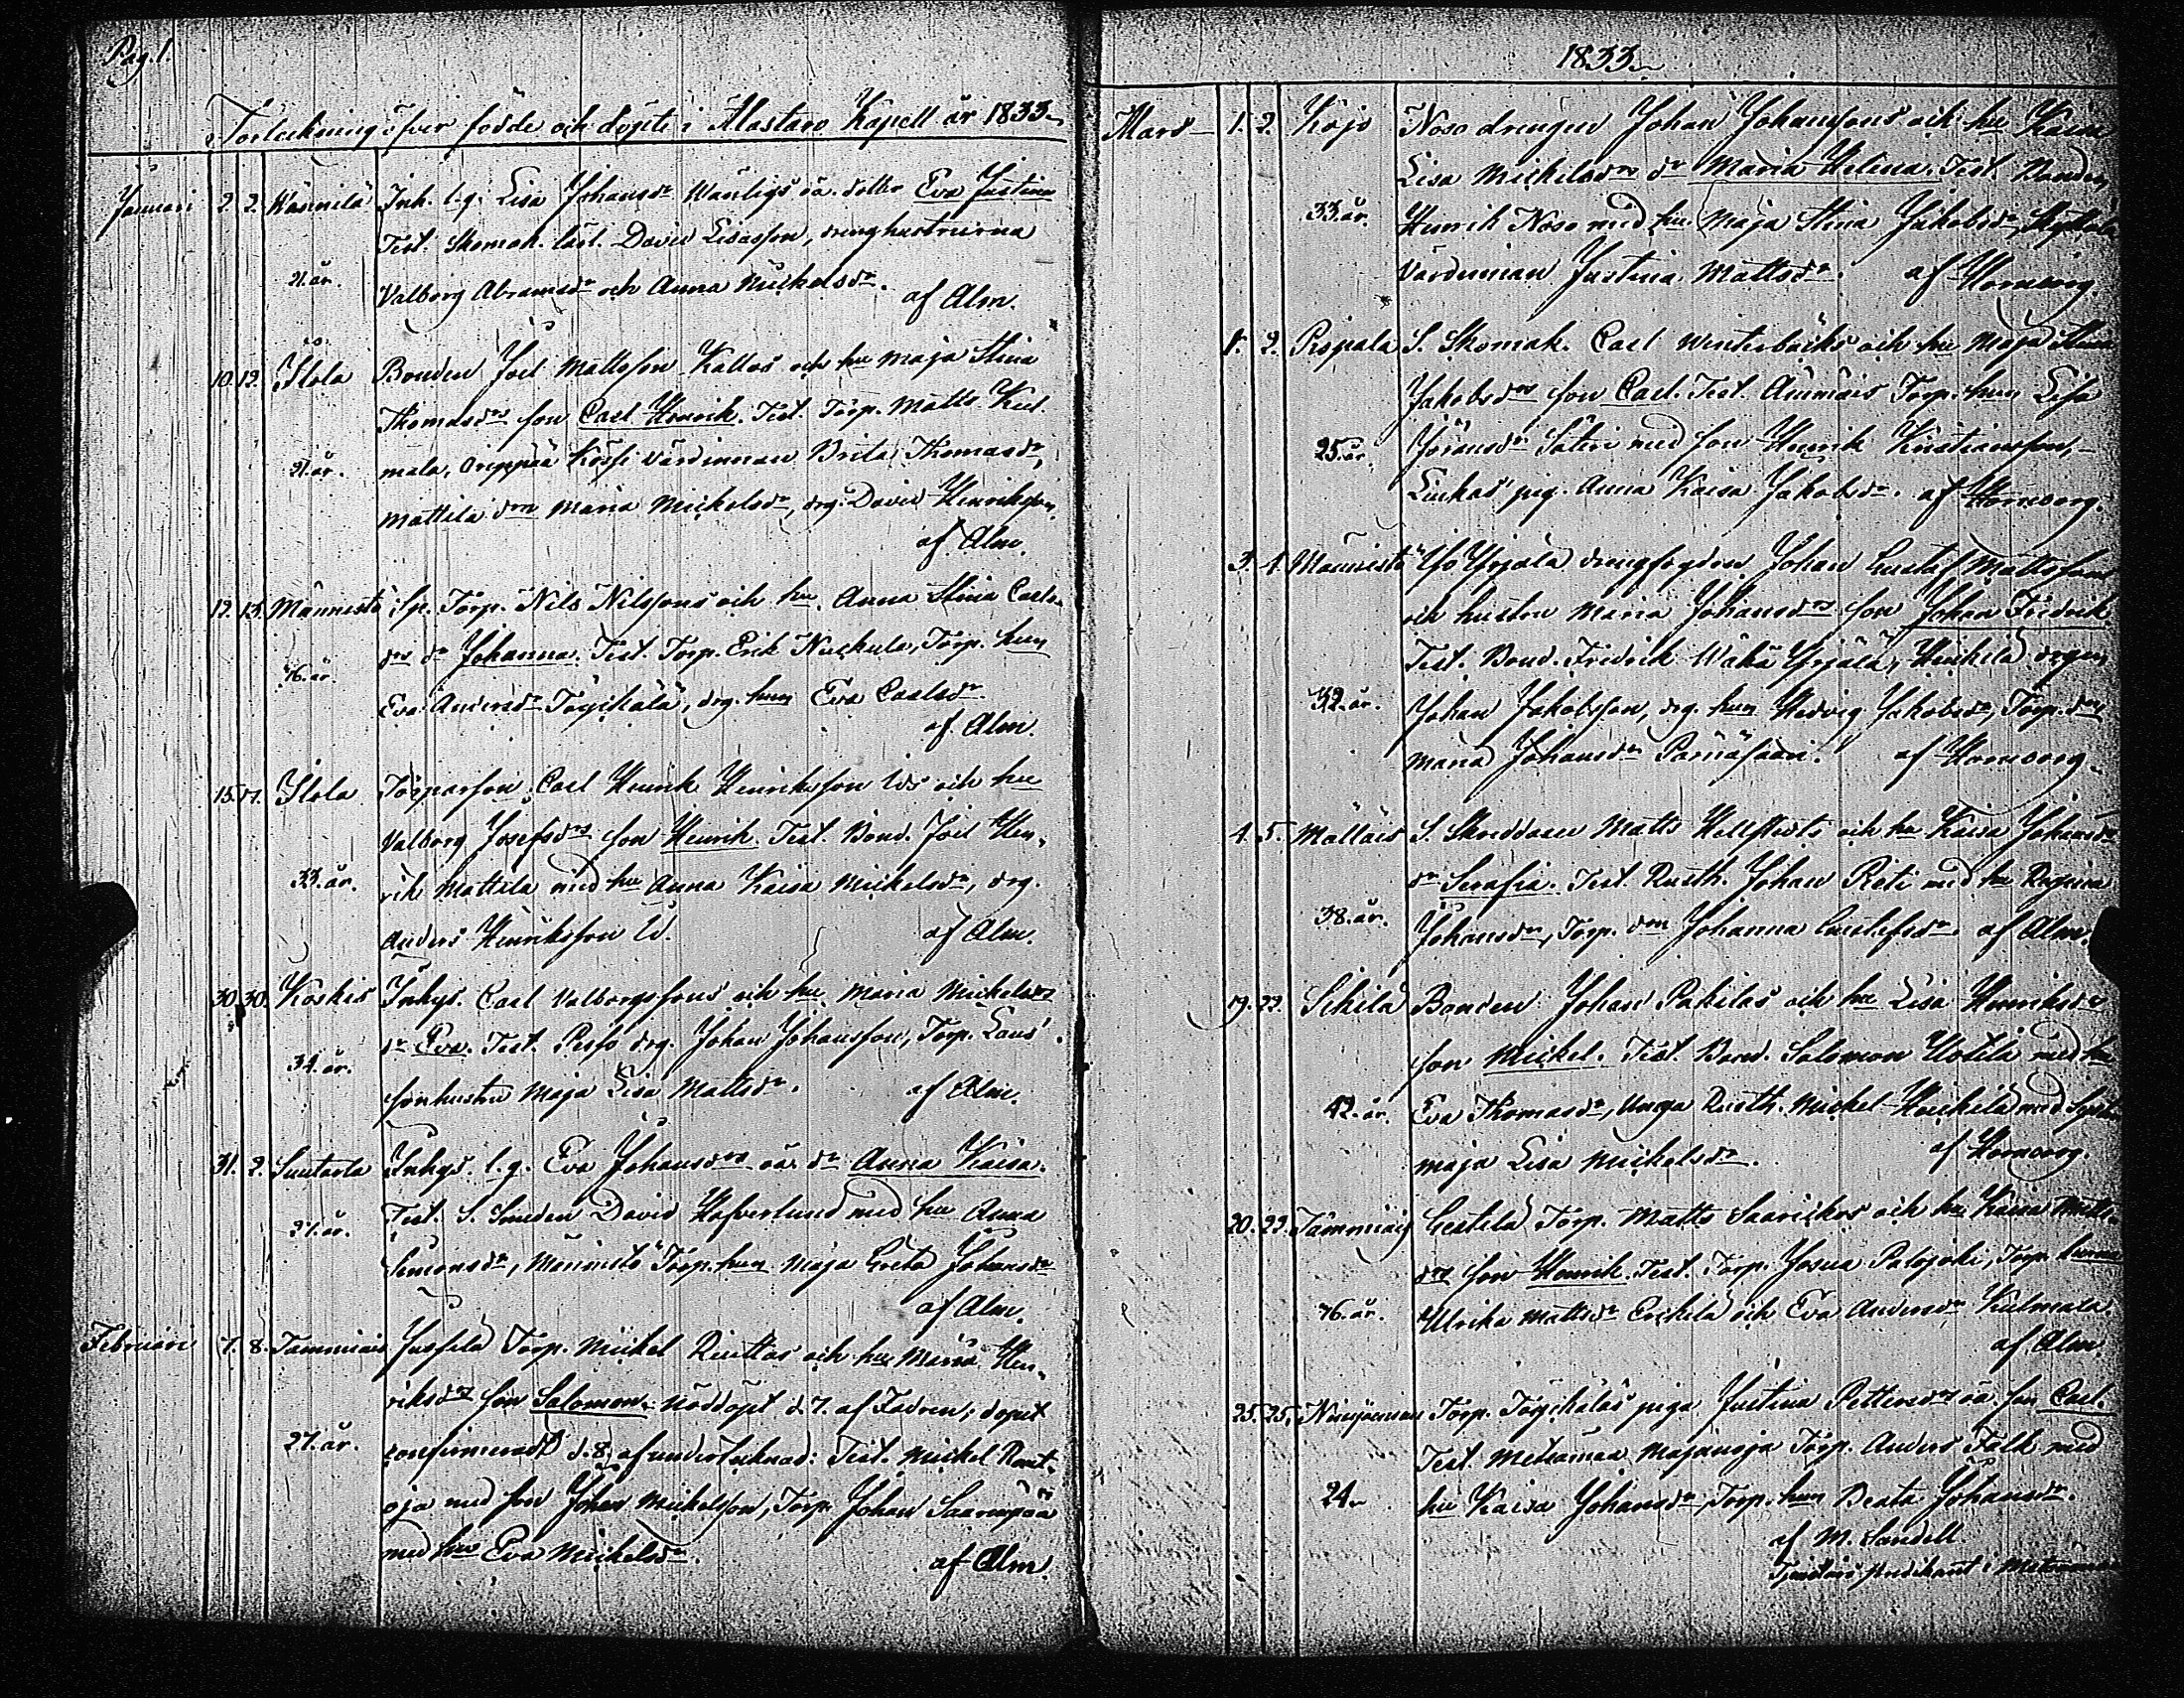 Pag. 1.
Förteckning öfver födde och döpte i Alastaro Kapell år 1833.
Januari 2. 2. Wännilä Inh. l.q. Lisa Johansdr Wänligs oä. dotter Eva Justina
Test. Skomak. lärl. David Lisasson, drenghustrurna
21. år. Valborg Abramsdr och Anna Michelsdr.
af Alm.
10. 12. Ilola Bonden Joel Mattsson Kallas och hu Maja Stina
Thomasdrs son Carl Henrik. Test. Torp. Matts Kul-
21. år. mala, Orippää Kåssi värdinnan Brita Thomasdr,
Mattila drn Maria Michelsdr, drg. David Henriksson,
af Alm.
12. 13. Männistö Sp. Torp. Nils Nilssons och hu Anna Stina Carls-
drs dr Johanna. Test. Torp. Erik Nuckula, Torp. hun
76. år. Eva Andersdr Töyckälä, drg. hun Eva Carlsdr
af Alm.
15. 17. Ilola Torparson Carl Henrik Henriksson Ids och hu
Valborg Josefsdrs son Henrik. Test. Bond. Joel Hen-
33. år. rik Mattila med hu Anna Kaisa Michelsdr, drg.
Anders Henriksson Id. af Alm.
30. 30. Koskis Inhys. Carl Valborgssons och hu Maria Michelsdrs
dr Eva. Test. Pesso drg. Johan Johansson, Torp. Laus'
34. år. sonhustru Maja Lisa Mattsdr. af Alm.
31. 2. Suutarla Inhys. l.q. Eva Johansdrs oä. dr Anna Kaisa.
27. år. Test. S. Smeden David Hafverlund med hu Anna
Simonsdr, Männistö Torp. hun Maja Greta Johansdr
af Alm.
Februari 7. 8. Tammiais Jussila Torp. Michel Ruttas och hu Maria Hen-
riksdrs son Salomon, nöddöpt d. 7. af Fadren; dopet
27. år. confirmeradt d. 8. af undertecknad: Test. Michel Raut-
oja med son Johan Michelsson, Torp. Johan Saarenpää
med hu Eva Michelsdr. af Alm.
1833.
Mars 1. 2. Kojo Noso drengen Johan Johanssons och hu Kaisa
Lisa Michelsdrs dr Maria Helena. Test. Bonden
33. år. Henrik Noso med hu Maja Stina Jakobsdr,
Värdinnan Justina Mattsdr. af Horneborg.
1. 2. Pispala S. Skomak. Carl Winterbäcks och hu Maja Stina
Jakobsdrs son Carl. Test. Ämmäis Torp. hun Lisa
25. år. Göransdr Säteri med son Henrik Kristiansson,
Luckas pig. Anna Kaisa Jakobsdr. af Horneborg.
3. 4. Männistö Yrjälä drengfogden Johan Gustaf Mattssons
och hustru Maria Johansdrs son Johan Fredrik
Test. Bond. Fredrik Wähä Yrjälä, Heickilä drgn
32. år. Johan Jakobsson, drg. hun Hedvig Jakobsdr, Torp. drn
Maria Johansdr Pärnäsaari. af Horneborg.
4. 5. Mälläis S. Skräddaren Matts Hellstedts och hu Kaisa Johansdrs
dr Serafia. Test. Rusth. Johan Reti med hu Regina
38. år. Johansdr, Torp. drn Johanna Gustafsdr. af Alm.
19. 22. Sikilä Bonden Johan Pakilas och hu Lisa Henriksdrs
son Michel. Test. Bond. Salomon Uotila med hu
42. år. Eva Thomasdr, Unga Rusth. Michel Heickilä med Syster
Maja Lisa Michelsdr. af Horneborg.
20. 22. Tammiais Gestilä Torp. Matts Saarickos och hu Kaisa Matts-
drs son Henrik. Test. Torp. Josua Palojoki, Torp. hurna
76. år. Ulrika Mattsdr Erckilä och Eva Andersdr Kulmala.
af Alm.
25. 25. Niinijoensuu Torp. Töyckäläs piga Justina Pettersdrs oä. son Carl.
Test. Metsämaa Majanoja Torp. Anders Falk med
24. hu Kaisa Johansdr, Torp. hun Beata Johansdr.
af M. Sandell
Tjenstförr. predikant i Metsämaa